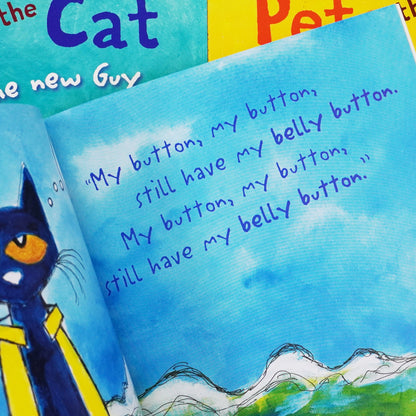 the Cat
he new Guy
Pet
th
"My button, my button,
still have my belly button.
My button, my button,
still have my belly button."